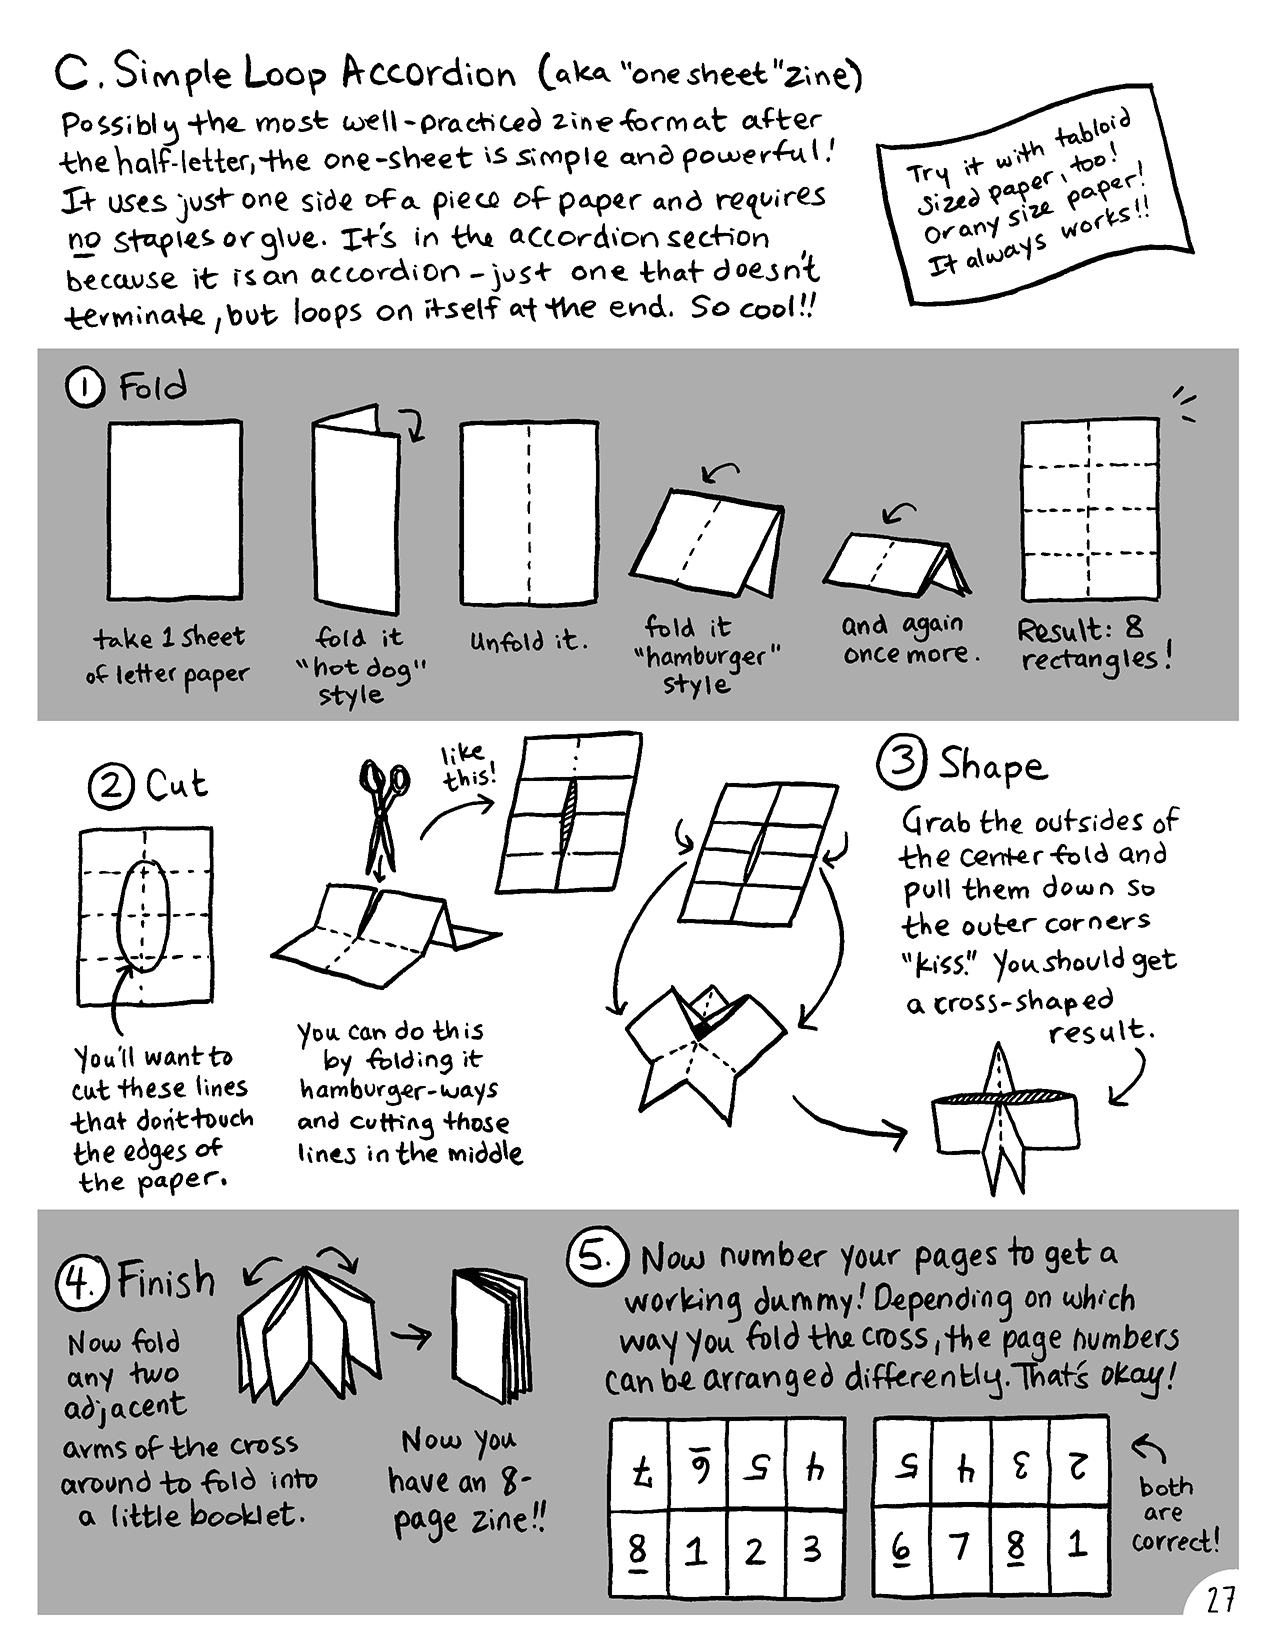 C. Simple Loop Accordion (aka "one sheet" zine)
Possibly the most well-practiced zine format after
the half-letter, the one-sheet is simple and powerful!
It uses just one side of a piece of paper and requires
no staples or glue. It's in the accordion section
because it is an accordion - just one that doesn't
terminate, but loops on itself at the end. So cool!!
Try it with tabloid
sized paper, too!
Or any size paper!
It always works!!
1 Fold
take 1 sheet
of letter paper
fold it
"hot dog"
style
Unfold it.
fold it
"hamburger"
style
and again
once more.
Result: 8
rectangles!
2 Cut
You'll want to
cut these lines
that don't touch
the edges of
the paper.
like
this!
You can do this
by folding it
hamburger-ways
and cutting those
lines in the middle
3 Shape
Grab the outsides of
the center fold and
pull them down so
the outer corners
"kiss." You should get
a cross-shaped
result.
4. Finish
Now fold
any two
adjacent
arms of the cross
around to fold into
a little booklet.
Now you
have an 8-
page zine!!
5. Now number your pages to get a
working dummy! Depending on which
way you fold the cross, the page numbers
can be arranged differently. That's okay!
7 6 5 4
8 1 2 3
5 4 3 2
6 7 8 1
both
are
correct!
27